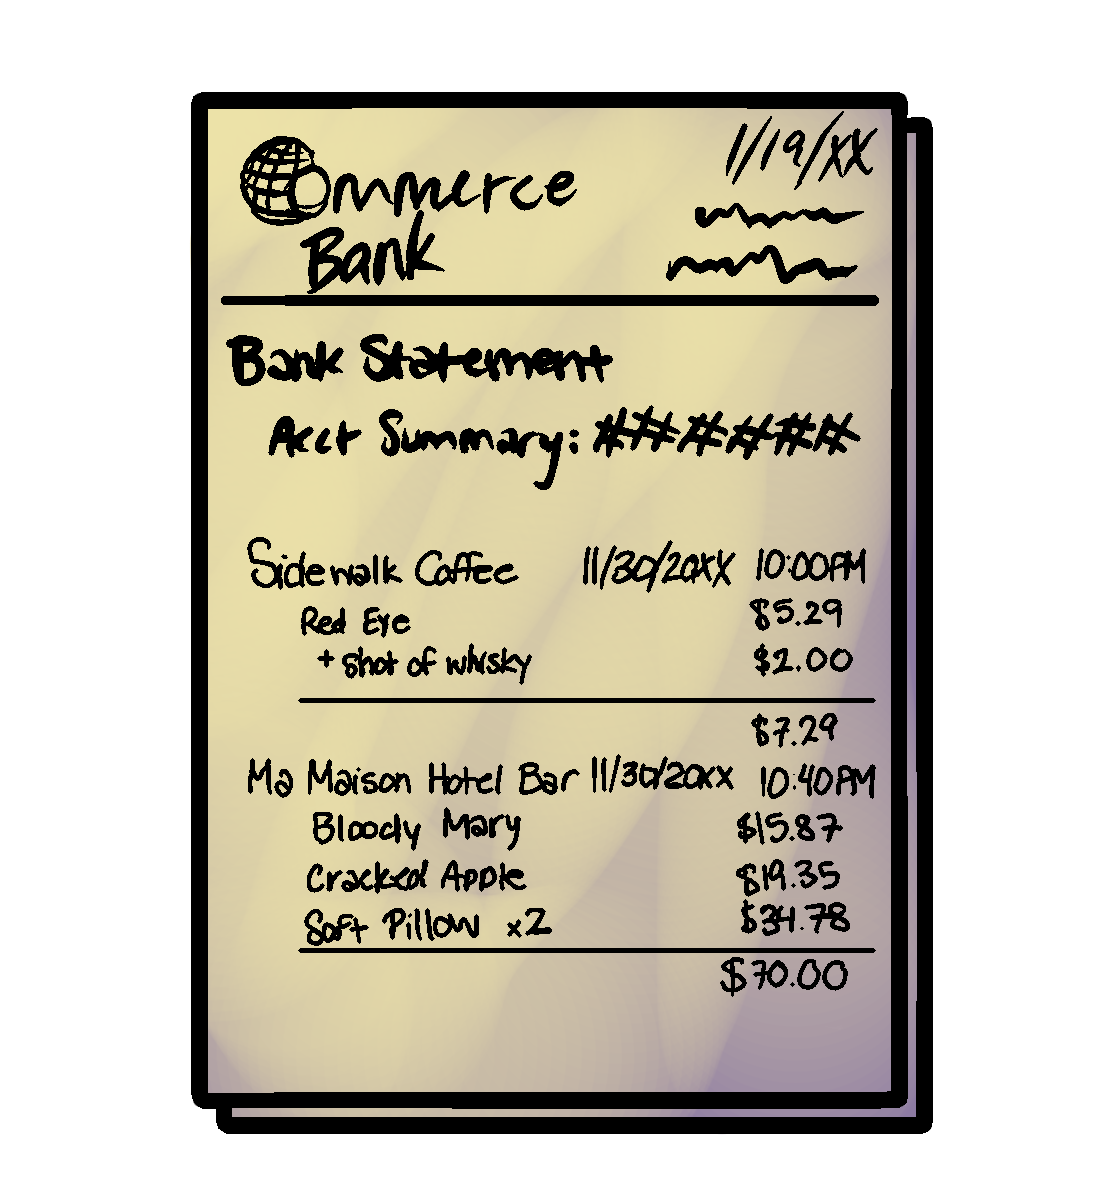 1/19/XX
Commerce
Bank
Bank Statement
Acct Summary: ######
Sidewalk Coffee 11/30/20XX 10:00PM
Red Eye $5.29
+ shot of whisky $2.00
$7.29
Ma Maison Hotel Bar 11/30/20XX 10:40PM
Bloody Mary $15.87
Cracked Apple $19.35
Soft Pillow x2 $34.78
$70.00